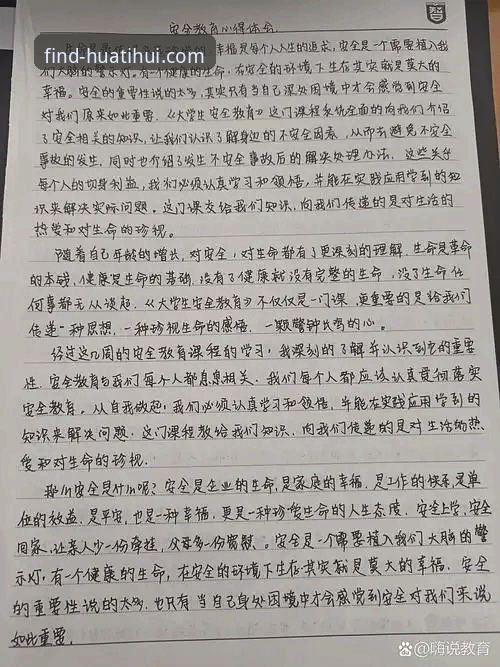 安全教育心得体会
find-huatihui.com
幸福是每个人人生的追求,安全是一个需要植入我
们大脑的警示灯。有一个健康的生命,在安全的环境下生存其实就是莫大的
幸福。安全的重要性说的太多,其实只有当自己深处困境中才会感觉到安全
对我们原来如此重要。《大学生安全教育》这门课程系统全面的向我们介绍
了安全相关的知识,让我们认识了解身边的不安全因素,从而去避免不安全
事故的发生,同时也介绍了发生不安全事故后的解决处理办法,这些关乎
每个人的切身利益,我们必须认真学习和领悟,并能在实践应用学到的知
识来解决实际问题。这门课交给我们知识,向我们传递的是对生活的
热爱和对生命的珍视。
随着自己年龄的增长,对安全,对生命都有了更深刻的理解,生命是革命
的本钱,健康是生命的基础,没有了健康就没有完整的生命,没了生命任
何事都无从谈起,《大学生安全教育》不仅仅是一门课,更重要的是给我们
传递一种思想,一种珍视生命的感悟,一颗警钟长鸣的心。
经过这几周的安全教育课程的学习,我深刻的了解并认识到它的重要
性,安全教育与我们每个人都息息相关,我们每个人都应该认真贯彻落实
安全教育。从自我做起,我们必须认真学习和领悟,并能在实践应用学到的
知识来解决问题,这门课程教给我们知识,向我们传递的是对生活的热
爱和对生命的珍视.
那么安全是什么呢?安全是企业的生命,是家庭的幸福,是工作的快乐是单
位的效益,是平安,也是一种幸福,更是一种珍爱生命的人生态度,安全上学,安全
回家,让亲人少一份牵挂,父母多一份宽慰。安全是一个需要植入我们大脑的警
示灯,有一个健康的生命,在安全的环境下生存其实就是莫大的幸福,安全
的重要性说的太多,也只有当自己身处困境中才会感觉到安全对我们来说
如此重要.
嗨说教育